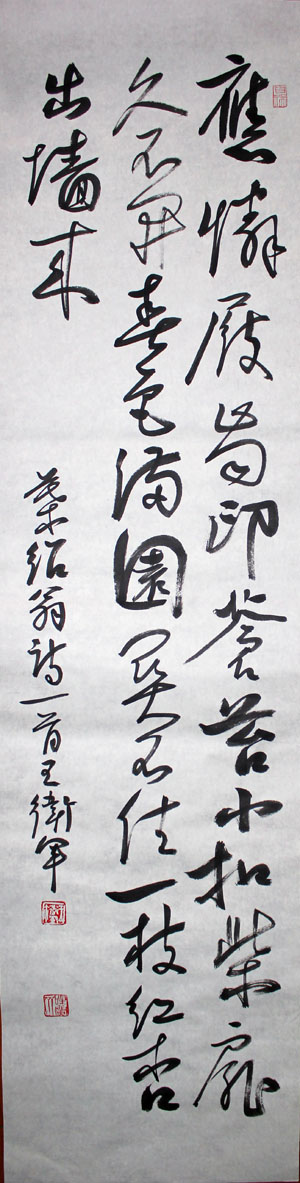 應憐屐齒印蒼苔小扣柴扉
久不開春色滿園關不住一枝紅杏
出墻來
葉紹翁詩一首王衛軍